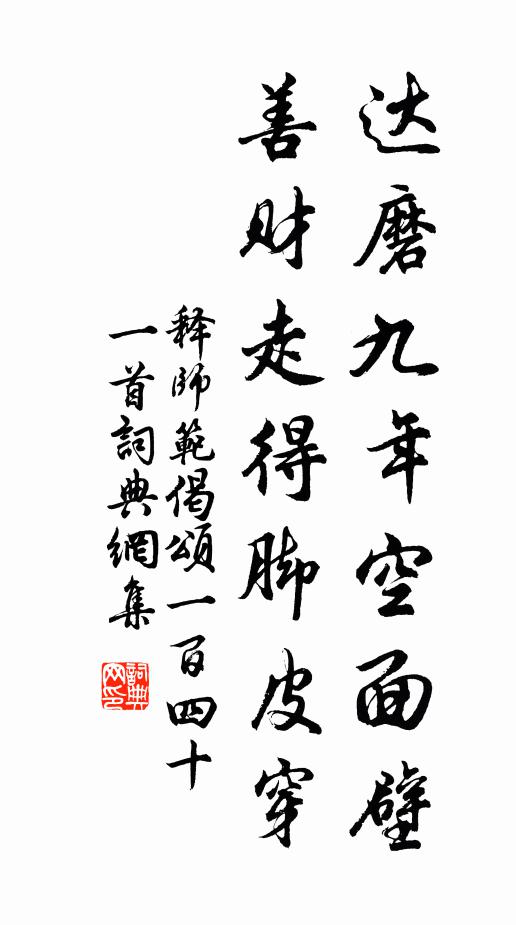 达磨九年空面壁
善财走得脚皮穿
释师範偈頌一百四十
一首詞典網集
詞典网印